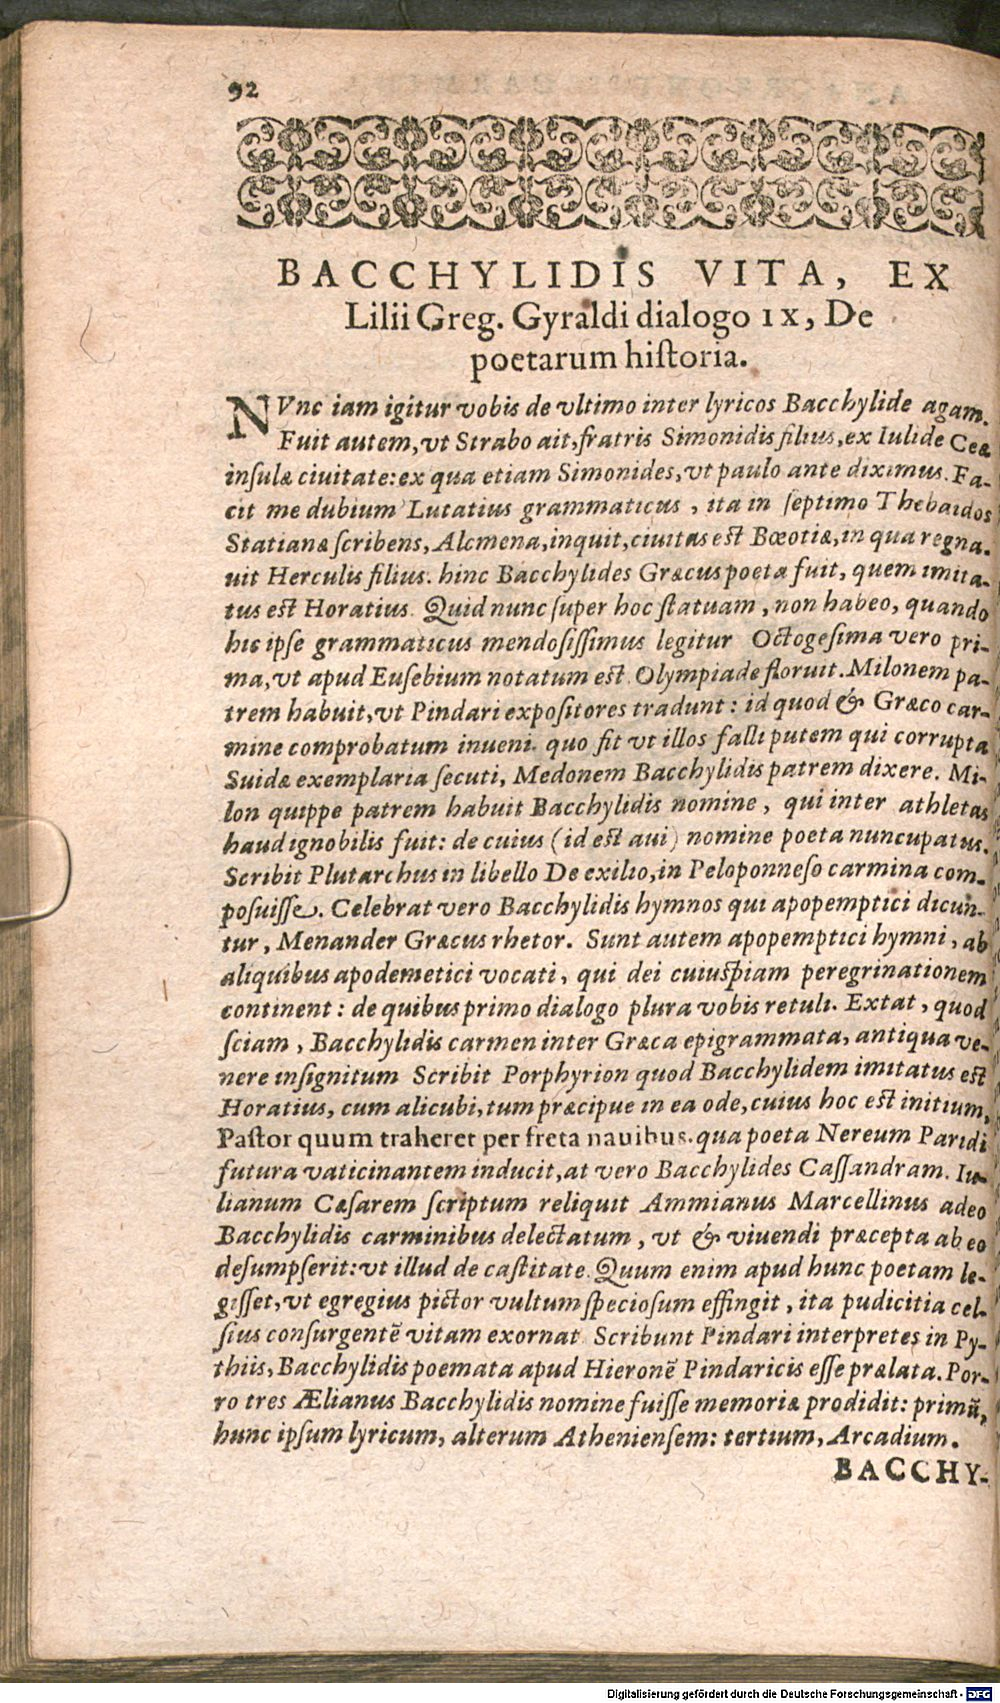 92
BACCHYLIDIS VITA, EX
Lilii Greg. Gyraldi dialogo IX, De
poetarum historia.
NVnc iam igitur vobis de vltimo inter lyricos Bacchylide agam.
Fuit autem, vt Strabo ait, fratris Simonidis filius, ex Iulide Ceæ
insulæ ciuitate: ex qua etiam Simonides, vt paulo ante diximus. Fa-
cit me dubium Lutatius grammaticus, ita in septimo Thebaidos
Statianæ scribens, Alcmena, inquit, ciuitas est Bœotiæ, in qua regna-
uit Herculis filius. hinc Bacchylides Græcus poeta fuit, quem imita-
tus est Horatius. Quid nunc super hoc statuam, non habeo, quando
hic ipse grammaticus mendosissimus legitur Octogesima vero pri-
ma, vt apud Eusebium notatum est, Olympiade floruit. Milonem pa-
trem habuit, vt Pindari expositores tradunt: id quod & Græco car-
mine comprobatum inueni. quo fit vt illos falli putem qui corrupta
Suidæ exemplaria secuti, Medonem Bacchylidis patrem dixere. Mi-
lon quippe patrem habuit Bacchylidis nomine, qui inter athletas
haud ignobilis fuit: de cuius (id est aui) nomine poeta nuncupatus.
Scribit Plutarchus in libello De exilio, in Peloponneso carmina com-
posuisse. Celebrat vero Bacchylidis hymnos qui apopemptici dicun-
tur, Menander Græcus rhetor. Sunt autem apopemptici hymni, ab
aliquibus apodemetici vocati, qui dei cuiuspiam peregrinationem
continent: de quibus primo dialogo plura vobis retuli. Extat, quod
sciam, Bacchylidis carmen inter Græca epigrammata, antiqua ve-
nere insignitum Scribit Porphyrion quod Bacchylidem imitatus est
Horatius, cum alicubi, tum præcipue in ea ode, cuius hoc est initium,
Pastor quum traheret per freta nauibus. qua poeta Nereum Paridi
futura vaticinantem inducit, at vero Bacchylides Cassandram. Iu-
lianum Cæsarem scriptum reliquit Ammianus Marcellinus adeo
Bacchylidis carminibus delectatum, vt & viuendi præcepta ab eo
desumpserit: vt illud de castitate. Quum enim apud hunc poetam le-
gisset, vt egregius pictor vultum speciosum effingit, ita pudicitia cel-
sius consurgentē vitam exornat Scribunt Pindari interpretes in Py-
thiis, Bacchylidis poemata apud Hieronē Pindaricis esse prælata. Por-
ro tres Ælianus Bacchylidis nomine fuisse memoriæ prodidit: primū,
hunc ipsum lyricum, alterum Atheniensem: tertium, Arcadium.
BACCHY-
Digitalisierung gefördert durch die Deutsche Forschungsgemeinschaft - DFG